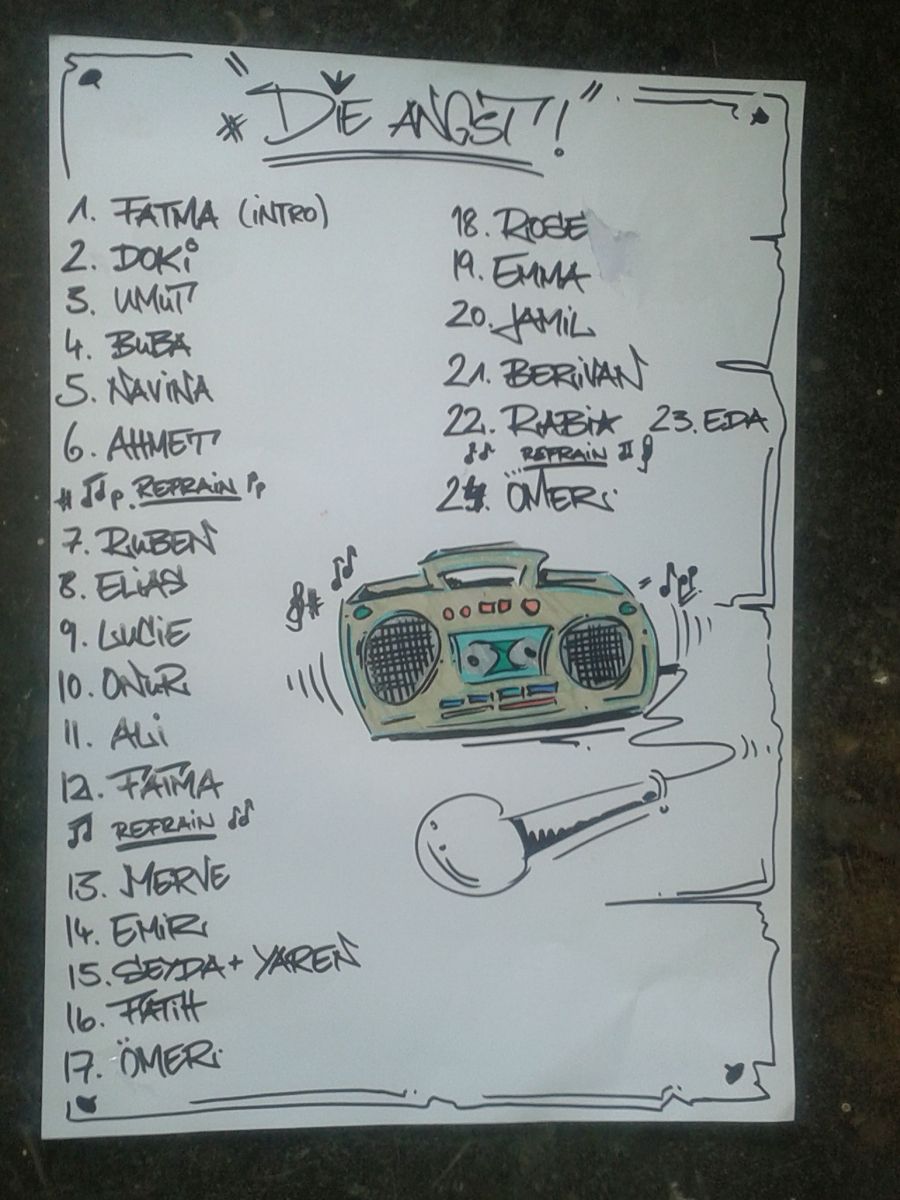 "DIE ANGST"!
1. FATMA (INTRO)
2. DOKI
3. UMUT
4. BUBA
5. NAVINA
6. AHMET
REFRAIN
7. RUBEN
8. ELIAS
9. LUCIE
10. ONUR
11. ALI
12. FATMA
REFRAIN
13. MERVE
14. EMIR
15. SEYDA + YAREN
16. FATIH
17. ÖMER
18. ROSE
19. EMMA
20. JAMIL
21. BERIVAN
22. RABIA 23. EDA
REFRAIN
24. ÖMER